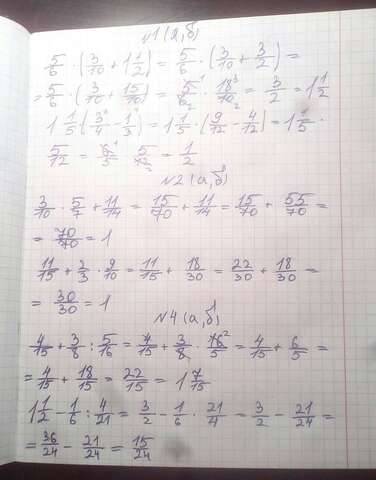 №1 (а,б)
5/6 · (3/10 + 1 1/2) = 5/6 · (3/10 + 3/2) =
= 5/6 · (3/10 + 15/10) = 5/6 · 18/10 = 3/2 = 1 1/2
1 1/5 (3/4 - 1/3) = 1 1/5 · (9/12 - 4/12) = 1 1/5 ·
5/12 = 6/5 5/12 = 1/2
№2 (а,б)
3/10 · 5/7 + 11/14 = 15/70 + 11/14 = 15/70 + 55/70 =
= 70/70 = 1
11/15 + 2/3 · 9/10 = 11/15 + 18/30 = 22/30 + 18/30 =
= 30/30 = 1
№4 (а,б)
4/15 + 3/8 : 5/16 = 4/15 + 3/8 · 16/5 = 4/15 + 6/5 =
= 4/15 + 18/15 = 22/15 = 1 7/15
1 1/2 - 1/6 : 4/21 = 3/2 - 1/6 · 21/4 = 3/2 - 21/24 =
= 36/24 - 21/24 = 15/24